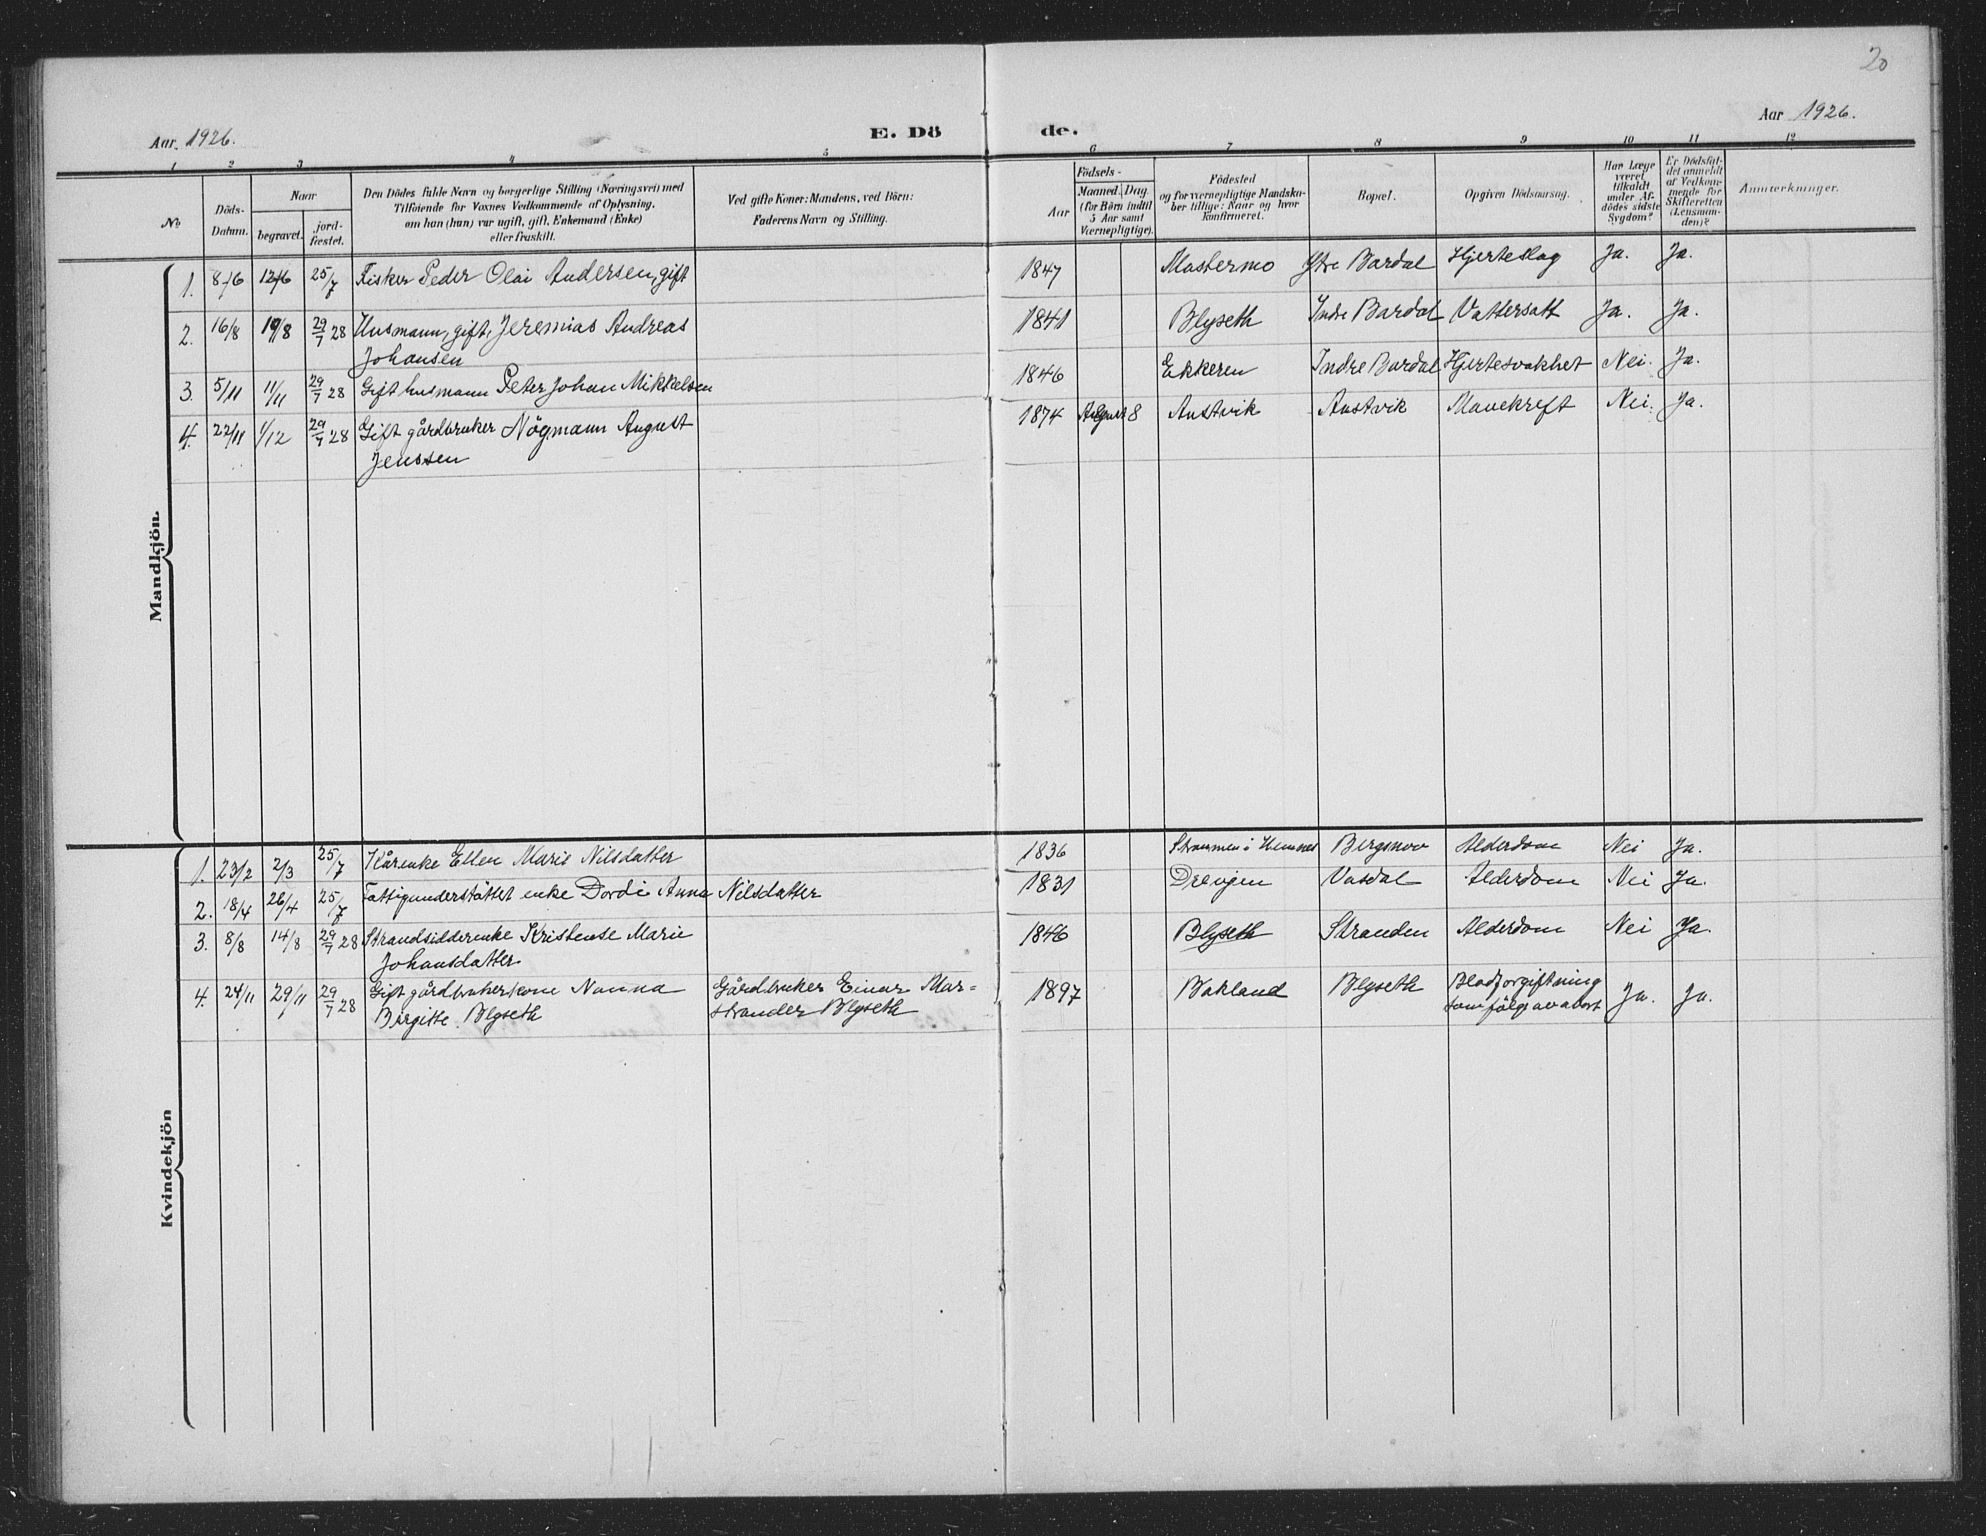 20
Aar 1926.
E. Dö
de.
Aar 1926.
1 2 3 4 5 6 7 8 9 10 11 12
No
Döds-Datum.
Naar
begravet.
jord-fæstet.
Den Dödes fulde Navn og borgerlige Stilling (Næringsvei) med
Tilföiende for Voxnes Vedkommende af Oplysning,
om han (hun) var ugift, gift, Enkemand (Enke)
eller fraskilt.
Ved gifte Koner: Mandens, ved Börn:
Faderens Navn og Stilling.
Födsels-
Aar
Maaned. Dag.
(for Börn indtil
5 Aar samt
Værnepligtige).
Födested
og for værnepligtige Mandska-
ber tillige: Naar og hvor
konfirmeret.
Bopæl.
Opgiven Dödsaarsag.
Har Læge
været
tilkaldt
under Af-
dödes sidste
Sygdom?
Er Dödsfal-
det anmeldt
af Vedkom-
mende for
Skifteretten
(Lensman-
den)?
Anmærkninger.
Mandkjön.
1. 8/6 12/6 25/7 Fisker Peder Olai Andersen, gift 1847 Mastermo Ytre Bardal Hjerteslag Ja. Ja.
2. 16/8 19/8 29/7 28 Husmann, gift, Jeremias Andreas 1841 Blyseth Indre Bardal Vattersott Ja. Ja.
Johansen
3. 5/11 11/11 29/7 28 Gift husmann Peter Johan Mikkelsen 1846 Ekkeren Indre Bardal Hjertesvakhet Nei. Ja.
4. 22/11 1/12 29/7 28 Gift gårdbruker Nögmann August 1874 August 8 Austvik Austvik Mavekreft Nei. Ja.
Jenssen
Kvindekjön
1. 23/2 2/3 25/7 Kårenke Ellen Marie Nilsdatter 1836 Strommen i Hemnes Bergsmov Alderdom Nei Ja.
2. 18/4 26/4 25/7 Fattigunderstöttet enke Dordi Anna Nilsdatter 1831 Drevjen Vasdal Alderdom Nei Ja.
3. 8/8 14/8 29/7 28 Strandsidderenke Kristense Marie 1846 Blyseth Stranden Alderdom Nei Ja.
Johansdatter
4. 24/11 29/11 29/7 28 Gift gårdbrukerkone Nanna Gårdbruker Einar Mar- 1897 Bakland Blyseth Blodforgiftning Ja. Ja.
Birgitte Blyseth strander Blyseth som fölge av abort